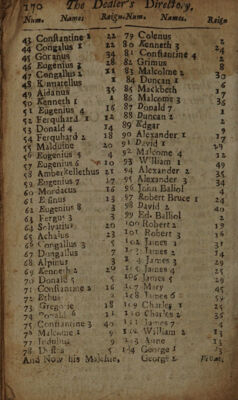 170 The Dealer's Directory,
Num. Names Raign. Num. Names. Raign
43 Constantine 2 22 79 Colenus 2
44 Congalus 1 22 80 Kenneth 3 24
45 Goranus 34 81 Constantine 4 2
46 Eugenius 3 28 82 Grimus 8
47 Congalus 2 11 83 Malcolme 2 30
48 Kinnatellus 1 84 Duncan 1
49 Aidanus 35 85 Mackbeth 17
50 Kenneth 1 1 86 Malcome 3 36
51 Eugenius 4 16 87 Donald 7 1
52 Ferquhard 1 12 88 Duncan 2 1
53 Donald 4 14 89 Edgar 9
54 Ferquhard 2 18 90 Alexander 1 17
55 Malduine 20 91 David 1 29
56 Eugenius 5 4 92 Malcome 4 12
57 Eugenius 6 10 93 William 1 49
58 Amberkellethus 21 94 Alexander 2 35
59 Eugenius 7 17 95 Alexander 3 34
60 Mordacus 16 96 John Balliol
61 Etfinus 13 97 Robert Bruce 1 24
62 Eugenius 8 3 98 David 2 40
63 Fergus 3 3 99 Ed. Balliol 2
64 Solvatius 20 100 Robert 2 19
65 Achaius 23 101 Robert 3 16
66 Congallus 3 5 102 James 1 31
67 Dongallus 7 103 James 2 24
68 Alpinus 3 104 James 3 29
69 Kenneth 2 20 105 James 4 25
70 Donald 5 5 106 James 5 29
71 Constantine 2 16 107 Mary 45
72 Ethus 2 108 James 6 59
73 Gregorie 18 109 Charles 1 25
74 Donald 6 11 110 Charles 2 36
75 Constantine 3 40 111 James 7 4
76 Malcome 1 9 112 William 2 13
77 Indulfus 113 Anne 13
78 Duffus 5 114 George 1 13
And Now his Majestie, George 2 Vivat.